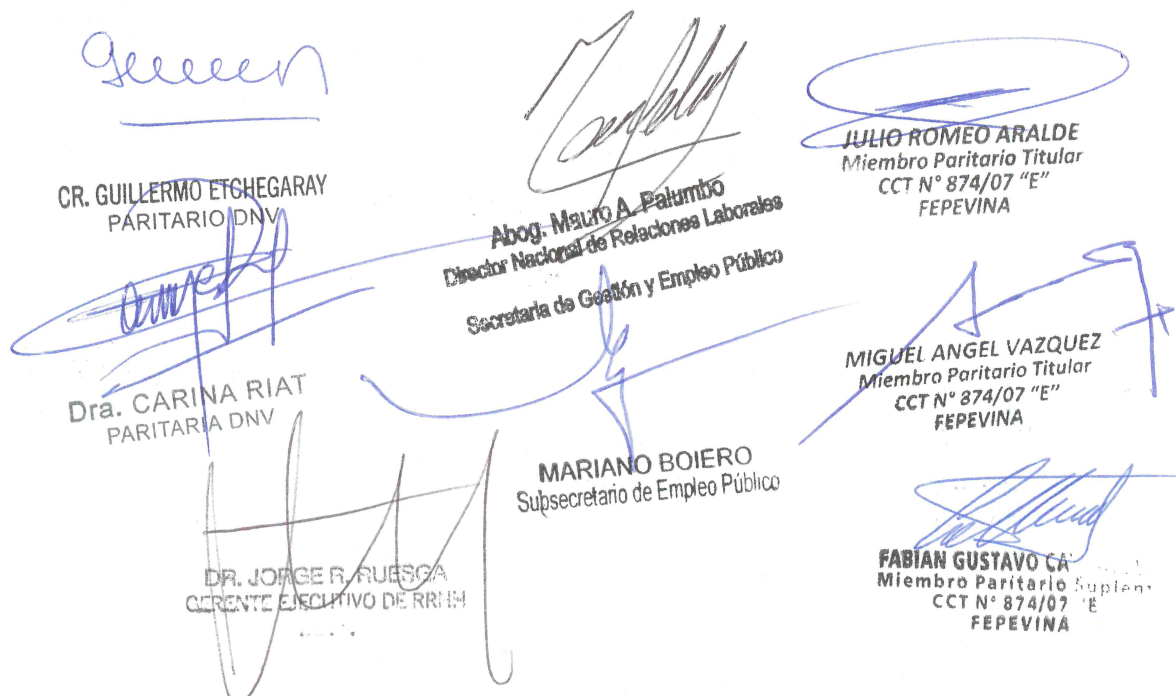 CR. GUILLERMO ETCHEGARAY
PARITARIO DNV
Dra. CARINA RIAT
PARITARIA DNV
DR. JORGE R. RUESGA
GERENTE EJECUTIVO DE RRHH
Abog. Mauro A. Palumbo
Director Nacional de Relaciones Laborales
Secretaría de Gestión y Empleo Público
MARIANO BOIERO
Subsecretario de Empleo Público
JULIO ROMEO ARALDE
Miembro Paritario Titular
CCT N° 874/07 "E"
FEPEVINA
MIGUEL ANGEL VAZQUEZ
Miembro Paritario Titular
CCT N° 874/07 "E"
FEPEVINA
FABIAN GUSTAVO
Miembro Paritario
CCT N° 874/07 "E
FEPEVINA